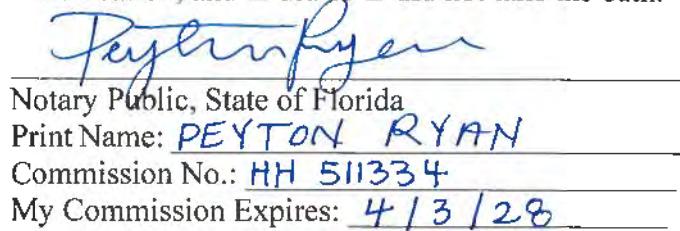 Peyton Ryan
Notary Public, State of Florida
Print Name: PEYTON RYAN
Commission No.: HH 511334
My Commission Expires: 4/3/28